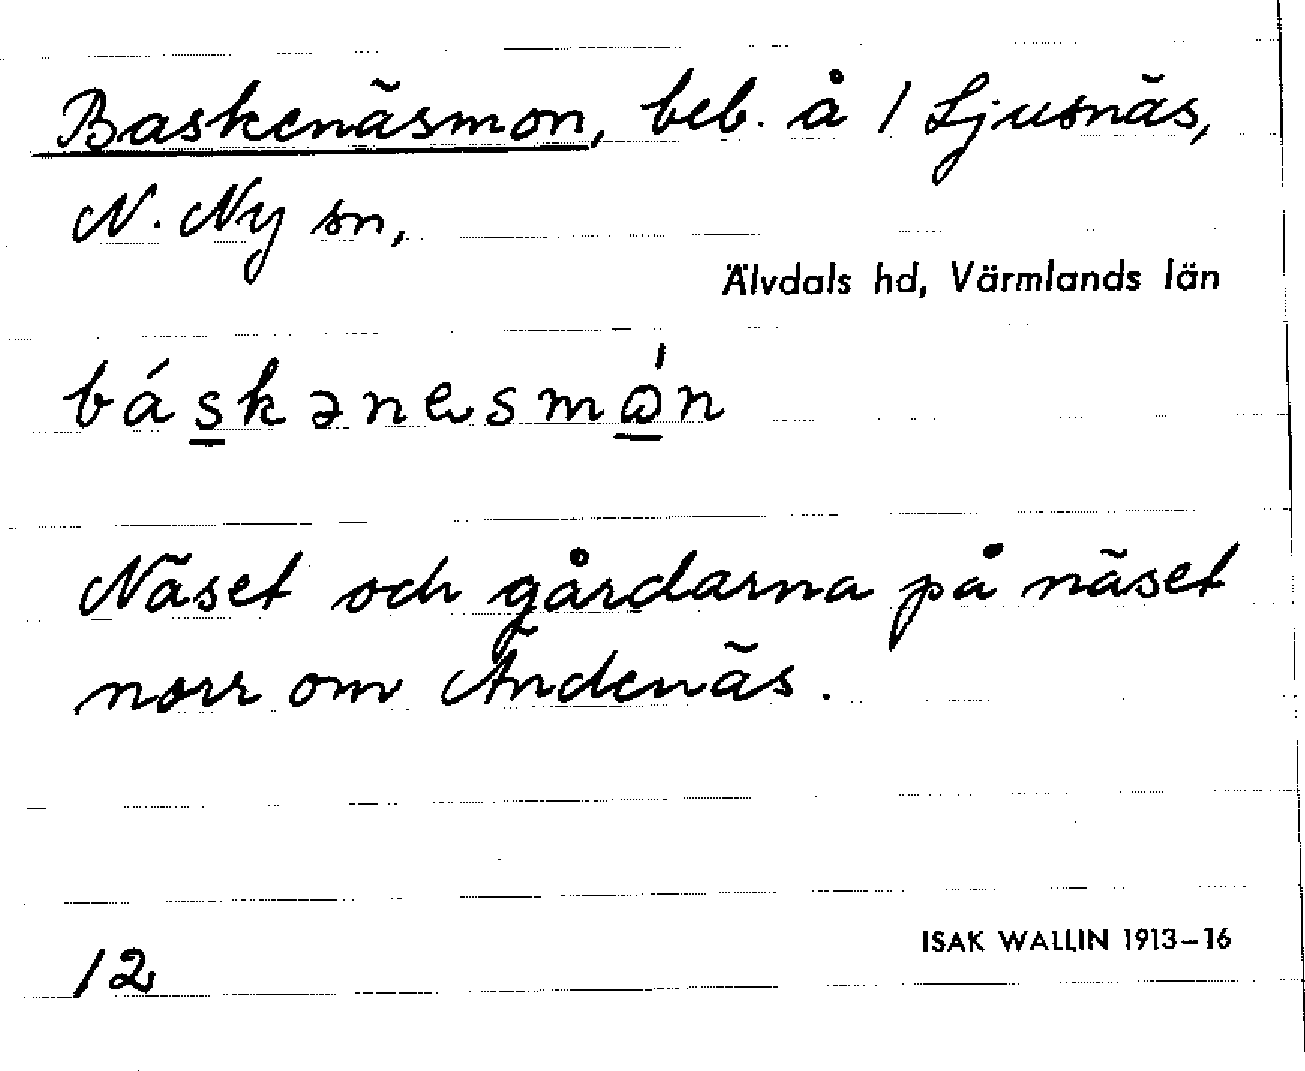 Baskenäsmon, beb. å 1 Ljusnäs,
N. Ny sn,
Älvdals hd, Värmlands län
báskənesmòn
Näset och gårdarna på näset
norr om Ändenäs.
12
ISAK WALLIN 1913–16